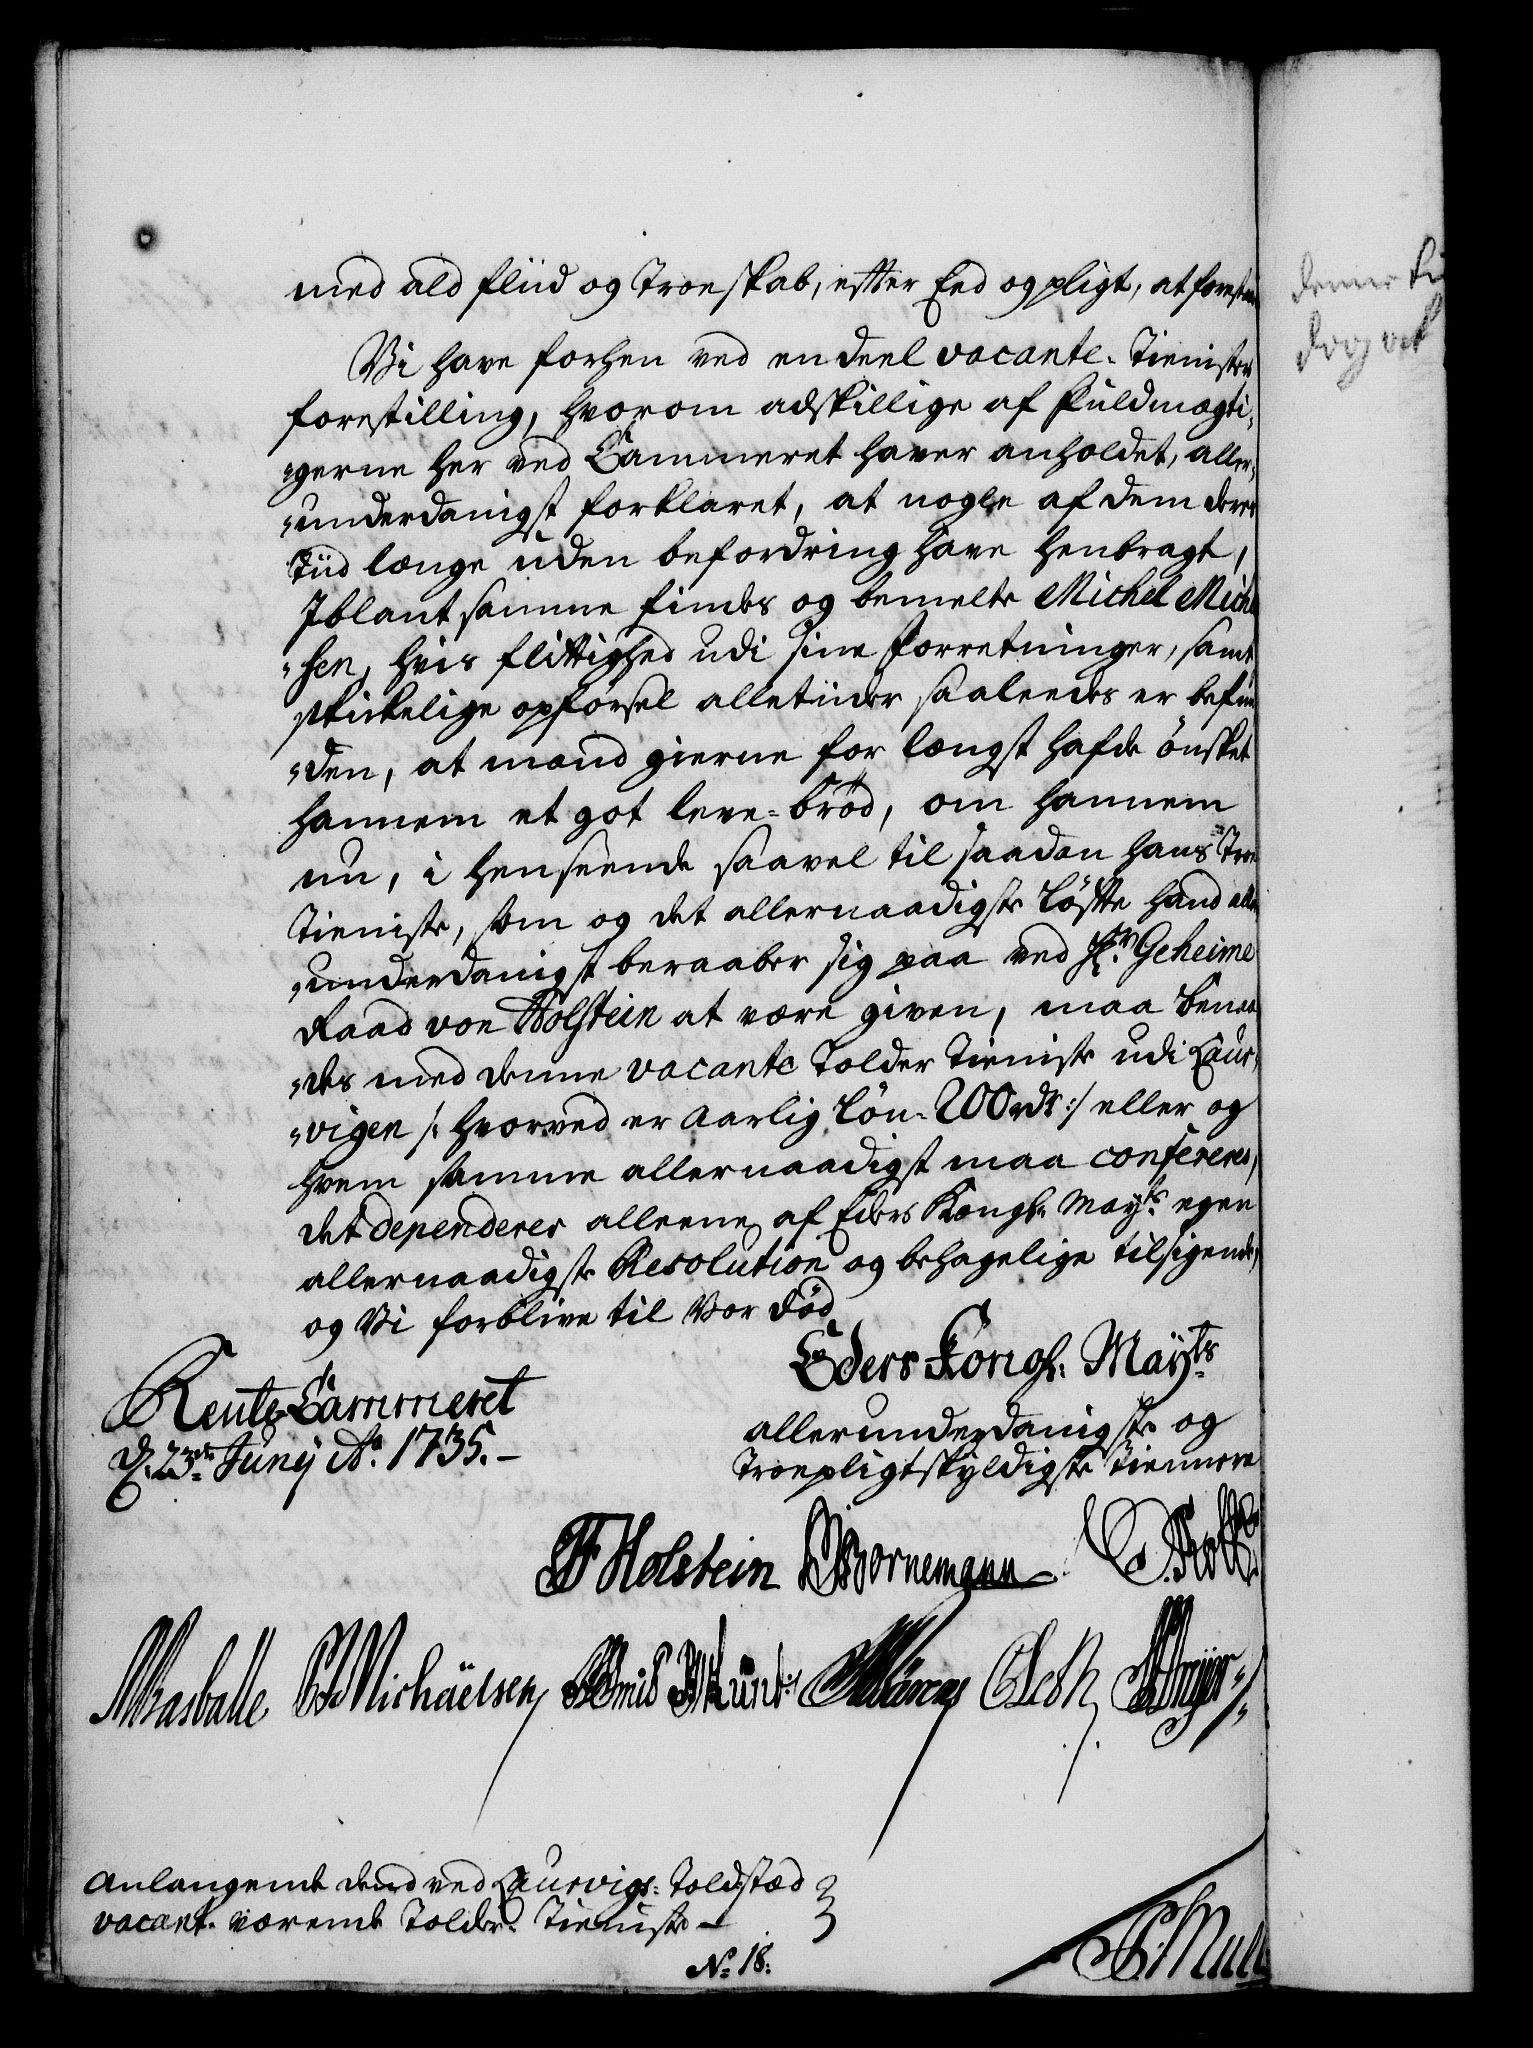 med ald fliid og Troeskab, efter Eed og pligt, at forestaae
Vi have forhen ved en deel vacante Tienisters
forestilling, hvorom adskillige af Fuldmægti,
„gerne her ved Cammeret haver anholdet, aller,
„underdanigst forklaret, at nogle af dem deres
Tiid længe uden befordring have henbragt,
Iblant samme findes og bemelte Michel Miche
„sen, hvis flittighed udi sine Forretninger, samt
skikkelige opførsel alletiider saaleedes er befun
„den, at mand gierne for længst hafde ønsket
hannem et got leve-brød, om hannem
nu, i henseende saavel til saadan hans Troe
Tieniste, som og det allernaadigste Løfte hand aller
„underdanigst beraaber sig paa ved Hr. Geheime
Raad von Holstein at være given, maa benaa
„des med denne vacante Tolder Tieniste udi Laur,
„vigen /: hvorved er Aarlig Løn 200 rdr :/ eller og
hvem samme allernaadigst maa confereres,
det dependerer alleene af Eders Kongl. Mayts egen
allernaadigste Resolution og behagelige tilsigende,
og Vi forblive til Vor død
Eders Kongl. Mayts
Rente Cammeret
d. 23de Junÿ Ao. 1735.
allerunderdanigste og
Troepligtskyldigste Tiennere
Holstein Bornemann
Michäelsen
Anlangende dend ved Laurvigs Toldstæd
vacant værende Tolder Tieniste
No 18.